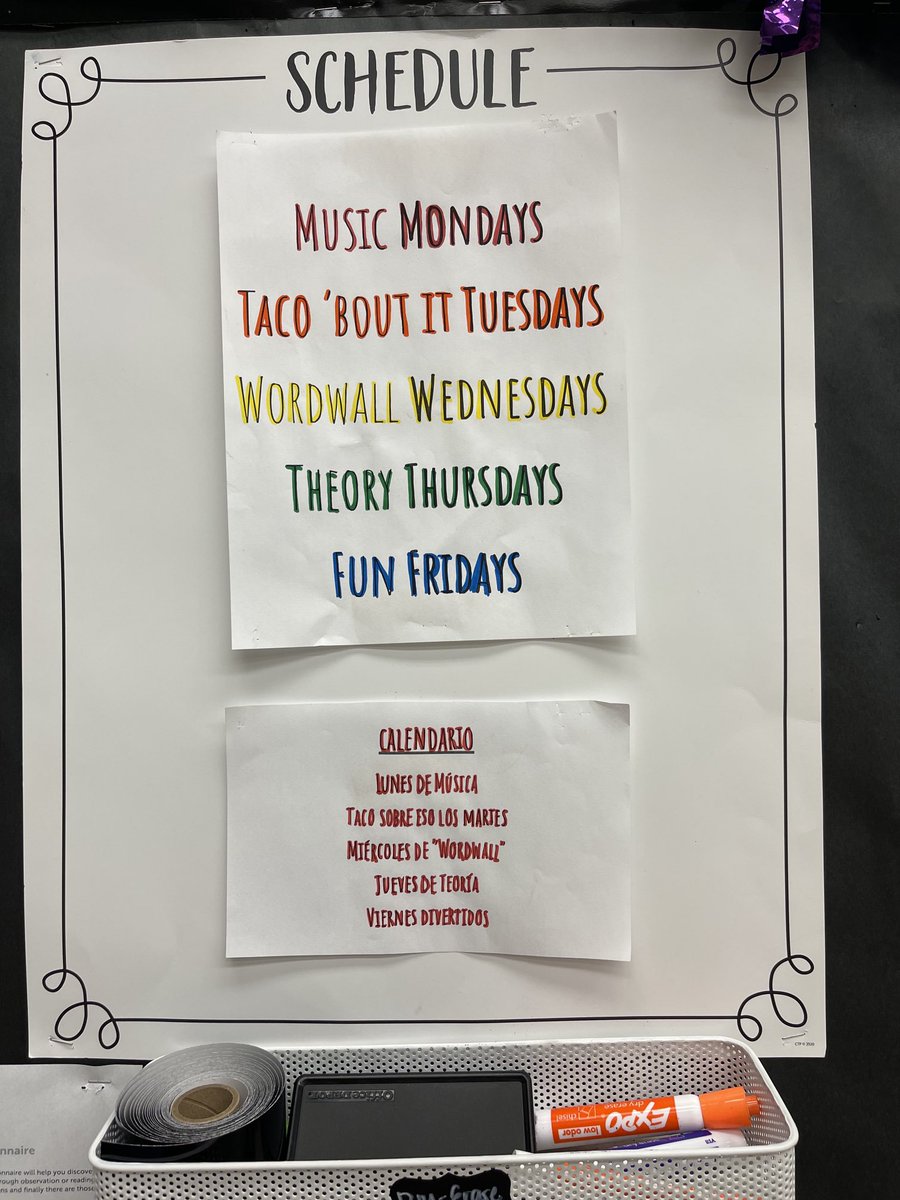 SCHEDULE
MUSIC MONDAYS
TACO 'BOUT IT TUESDAYS
WORDWALL WEDNESDAYS
THEORY THURSDAYS
FUN FRIDAYS
CALENDARIO
LUNES DE MÚSICA
TACO SOBRE ESO LOS MARTES
MIÉRCOLES DE "WORDWALL"
JUEVES DE TEORÍA
VIERNES DIVERTIDOS
CTP © 2020
Office DEPOT
EXPO
dry erase
chisel
low odor
nnaire
onnaire will help you discove
rough observation or reading
ns and finally there are those
Dry-Erase